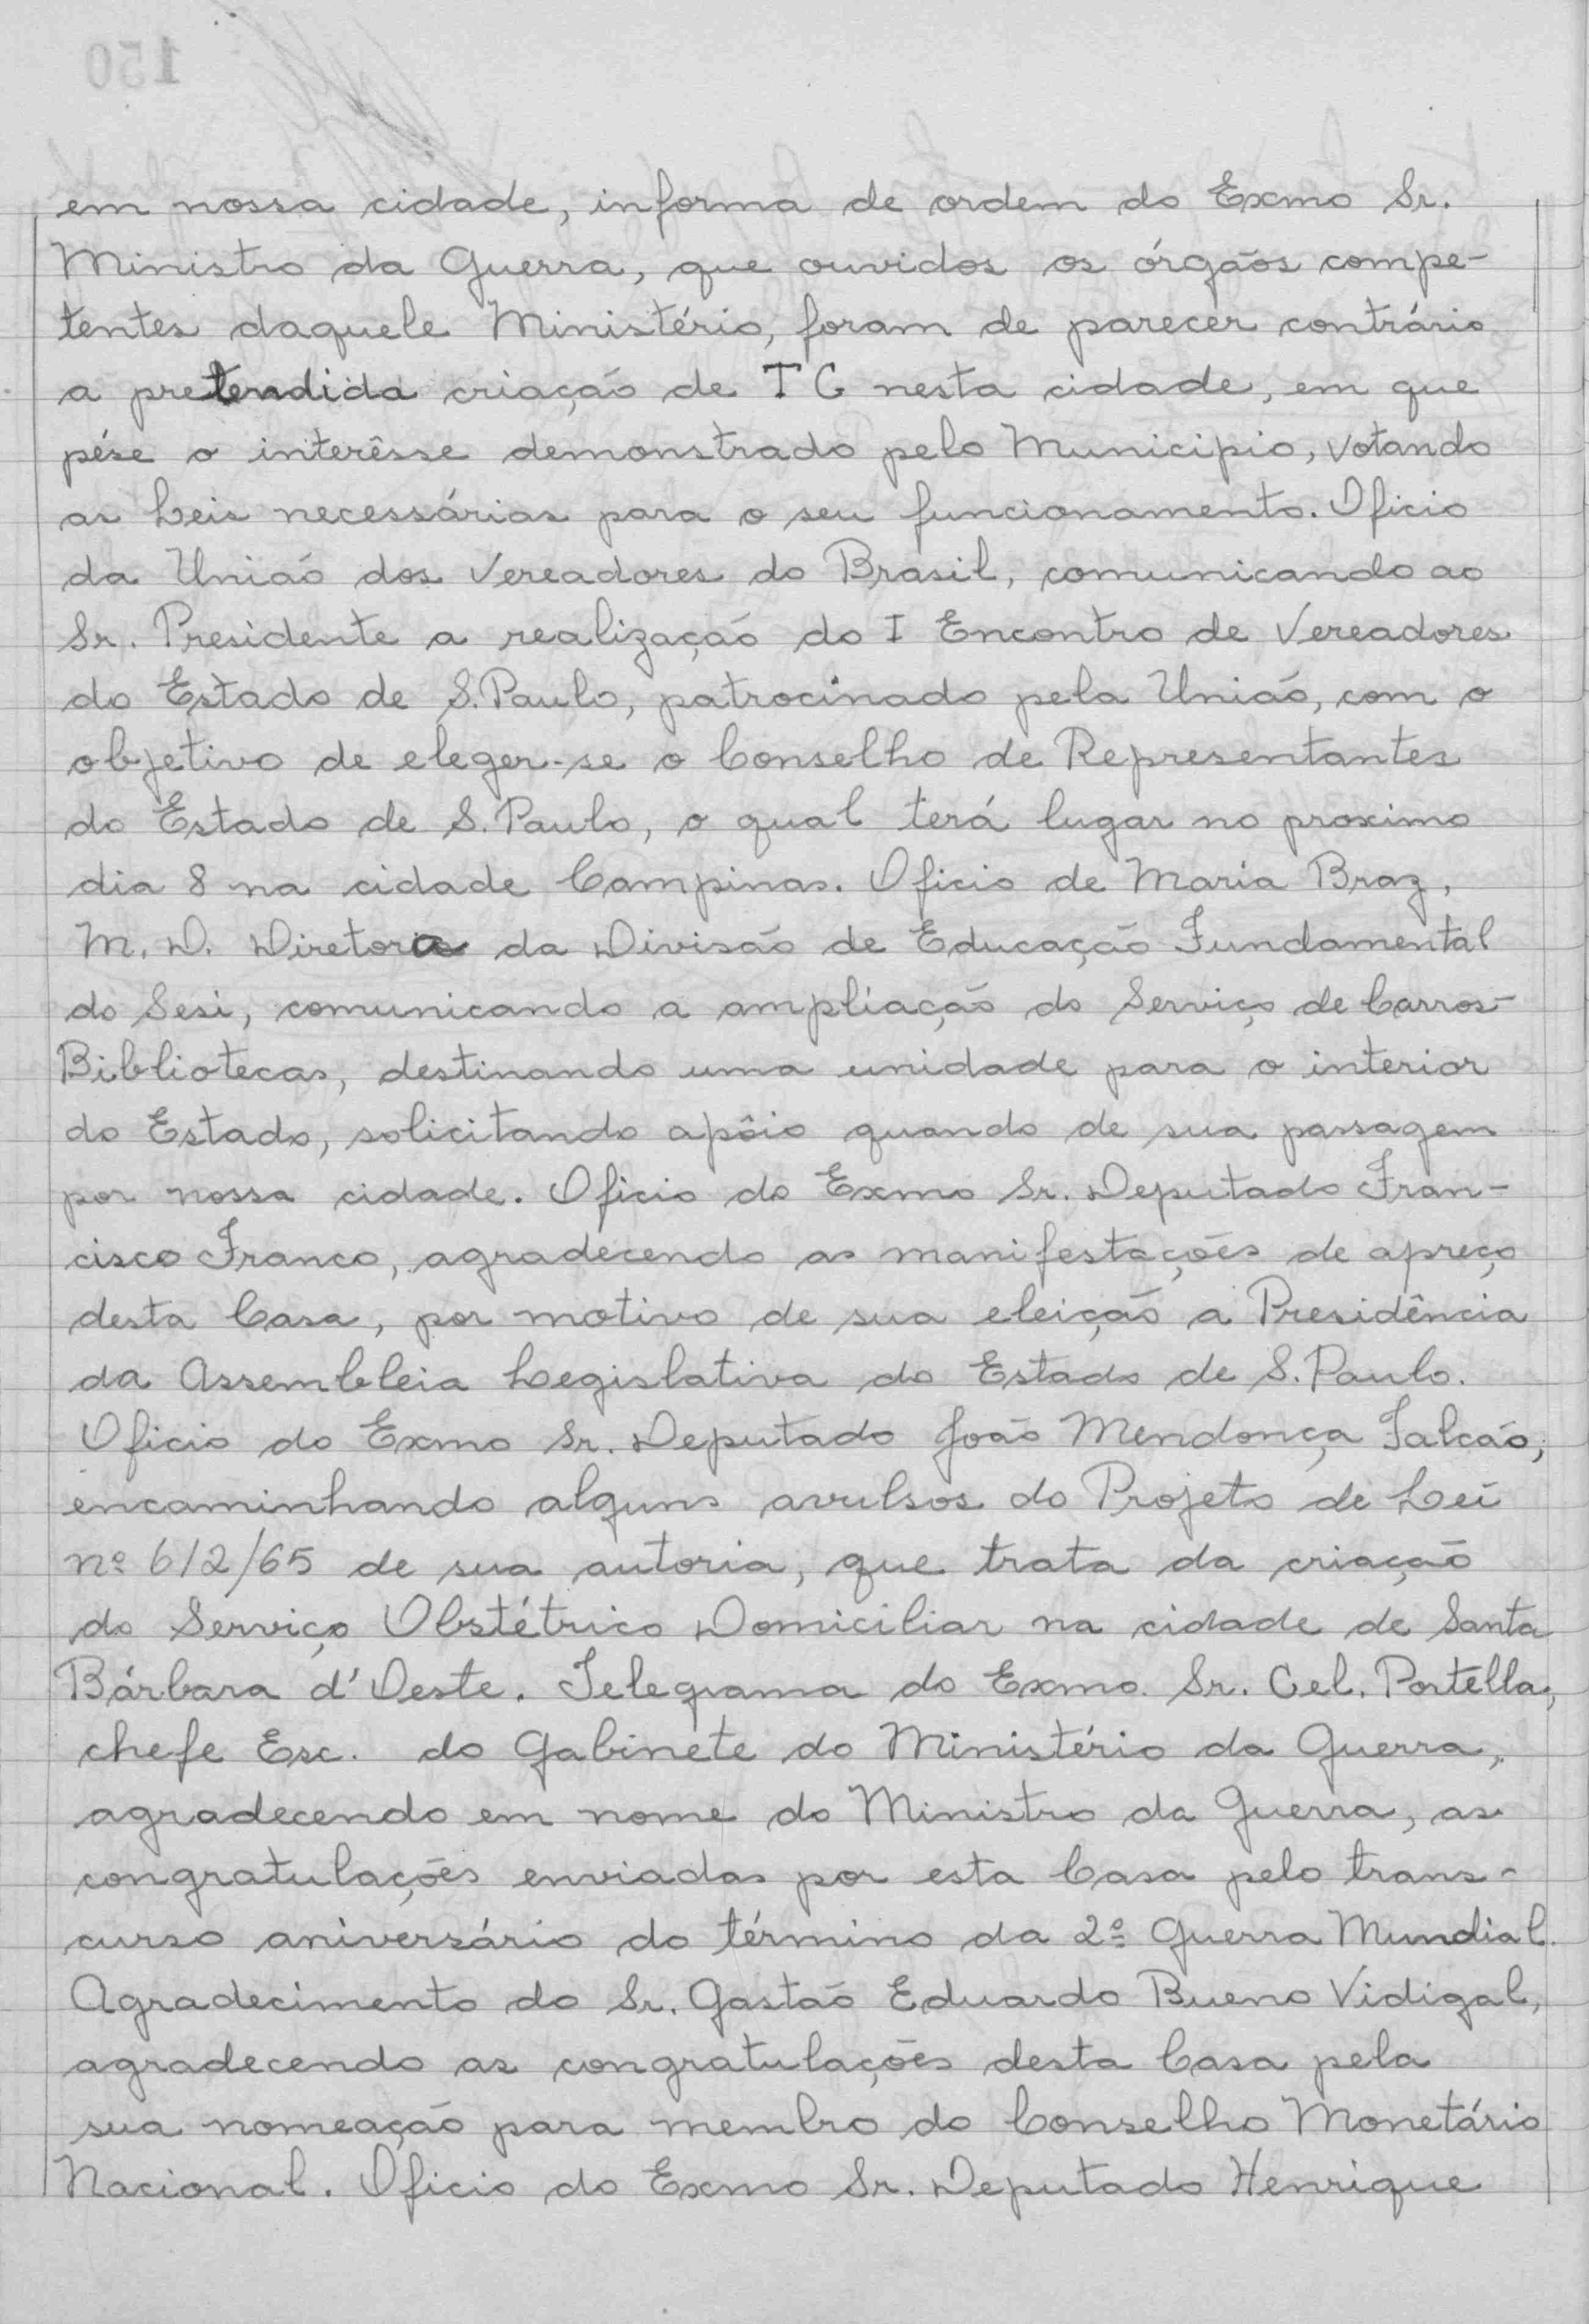 150
em nossa cidade, informa de ordem do Exmo Sr.
Ministro da Guerra, que ouvidos os órgãos compe-
tentes daquele Ministério, foram de parecer contrário
a pretendida criação de T G nesta cidade, em que
pése o interêsse demonstrado pelo Municipio, votando
as Leis necessárias para o seu funcionamento. Oficio
da União dos Vereadores do Brasil, comunicando ao
Sr. Presidente a realização do I Encontro de Vereadores
do Estado de S. Paulo, patrocinado pela União, com o
objetivo de eleger-se o Conselho de Representantes
do Estado de S. Paulo, o qual terá lugar no proximo
dia 8 na cidade Campinas. Oficio de Maria Braz,
M. D. Diretora da Divisão de Educação Fundamental
do Sesi, comunicando a ampliação do Serviço de Carros-
Bibliotecas, destinando uma unidade para o interior
do Estado, solicitando apôio quando de sua passagem
por nossa cidade. Oficio do Exmo Sr. Deputado Fran-
cisco Franco, agradecendo as manifestações de apreço
desta Casa, por motivo de sua eleição a Presidência
da Assembleia Legislativa do Estado de S. Paulo.
Oficio do Exmo Sr. Deputado João Mendonça Falcão,
encaminhando alguns avulsos do Projeto de Lei
nº 612/65 de sua autoria, que trata da criação
do Serviço Obstétrico Domiciliar na cidade de Santa
Bárbara d'Oeste. Telegrama do Exmo. Sr. Cel. Portella,
chefe Esc. do Gabinete do Ministério da Guerra,
agradecendo em nome do Ministro da Guerra, as
congratulações enviadas por esta Casa pelo trans-
curso aniversário do término da 2º Guerra Mundial.
Agradecimento do Sr. Gastão Eduardo Bueno Vidigal,
agradecendo as congratulações desta Casa pela
sua nomeação para membro do Conselho Monetário
Nacional. Oficio do Exmo Sr. Deputado Henrique